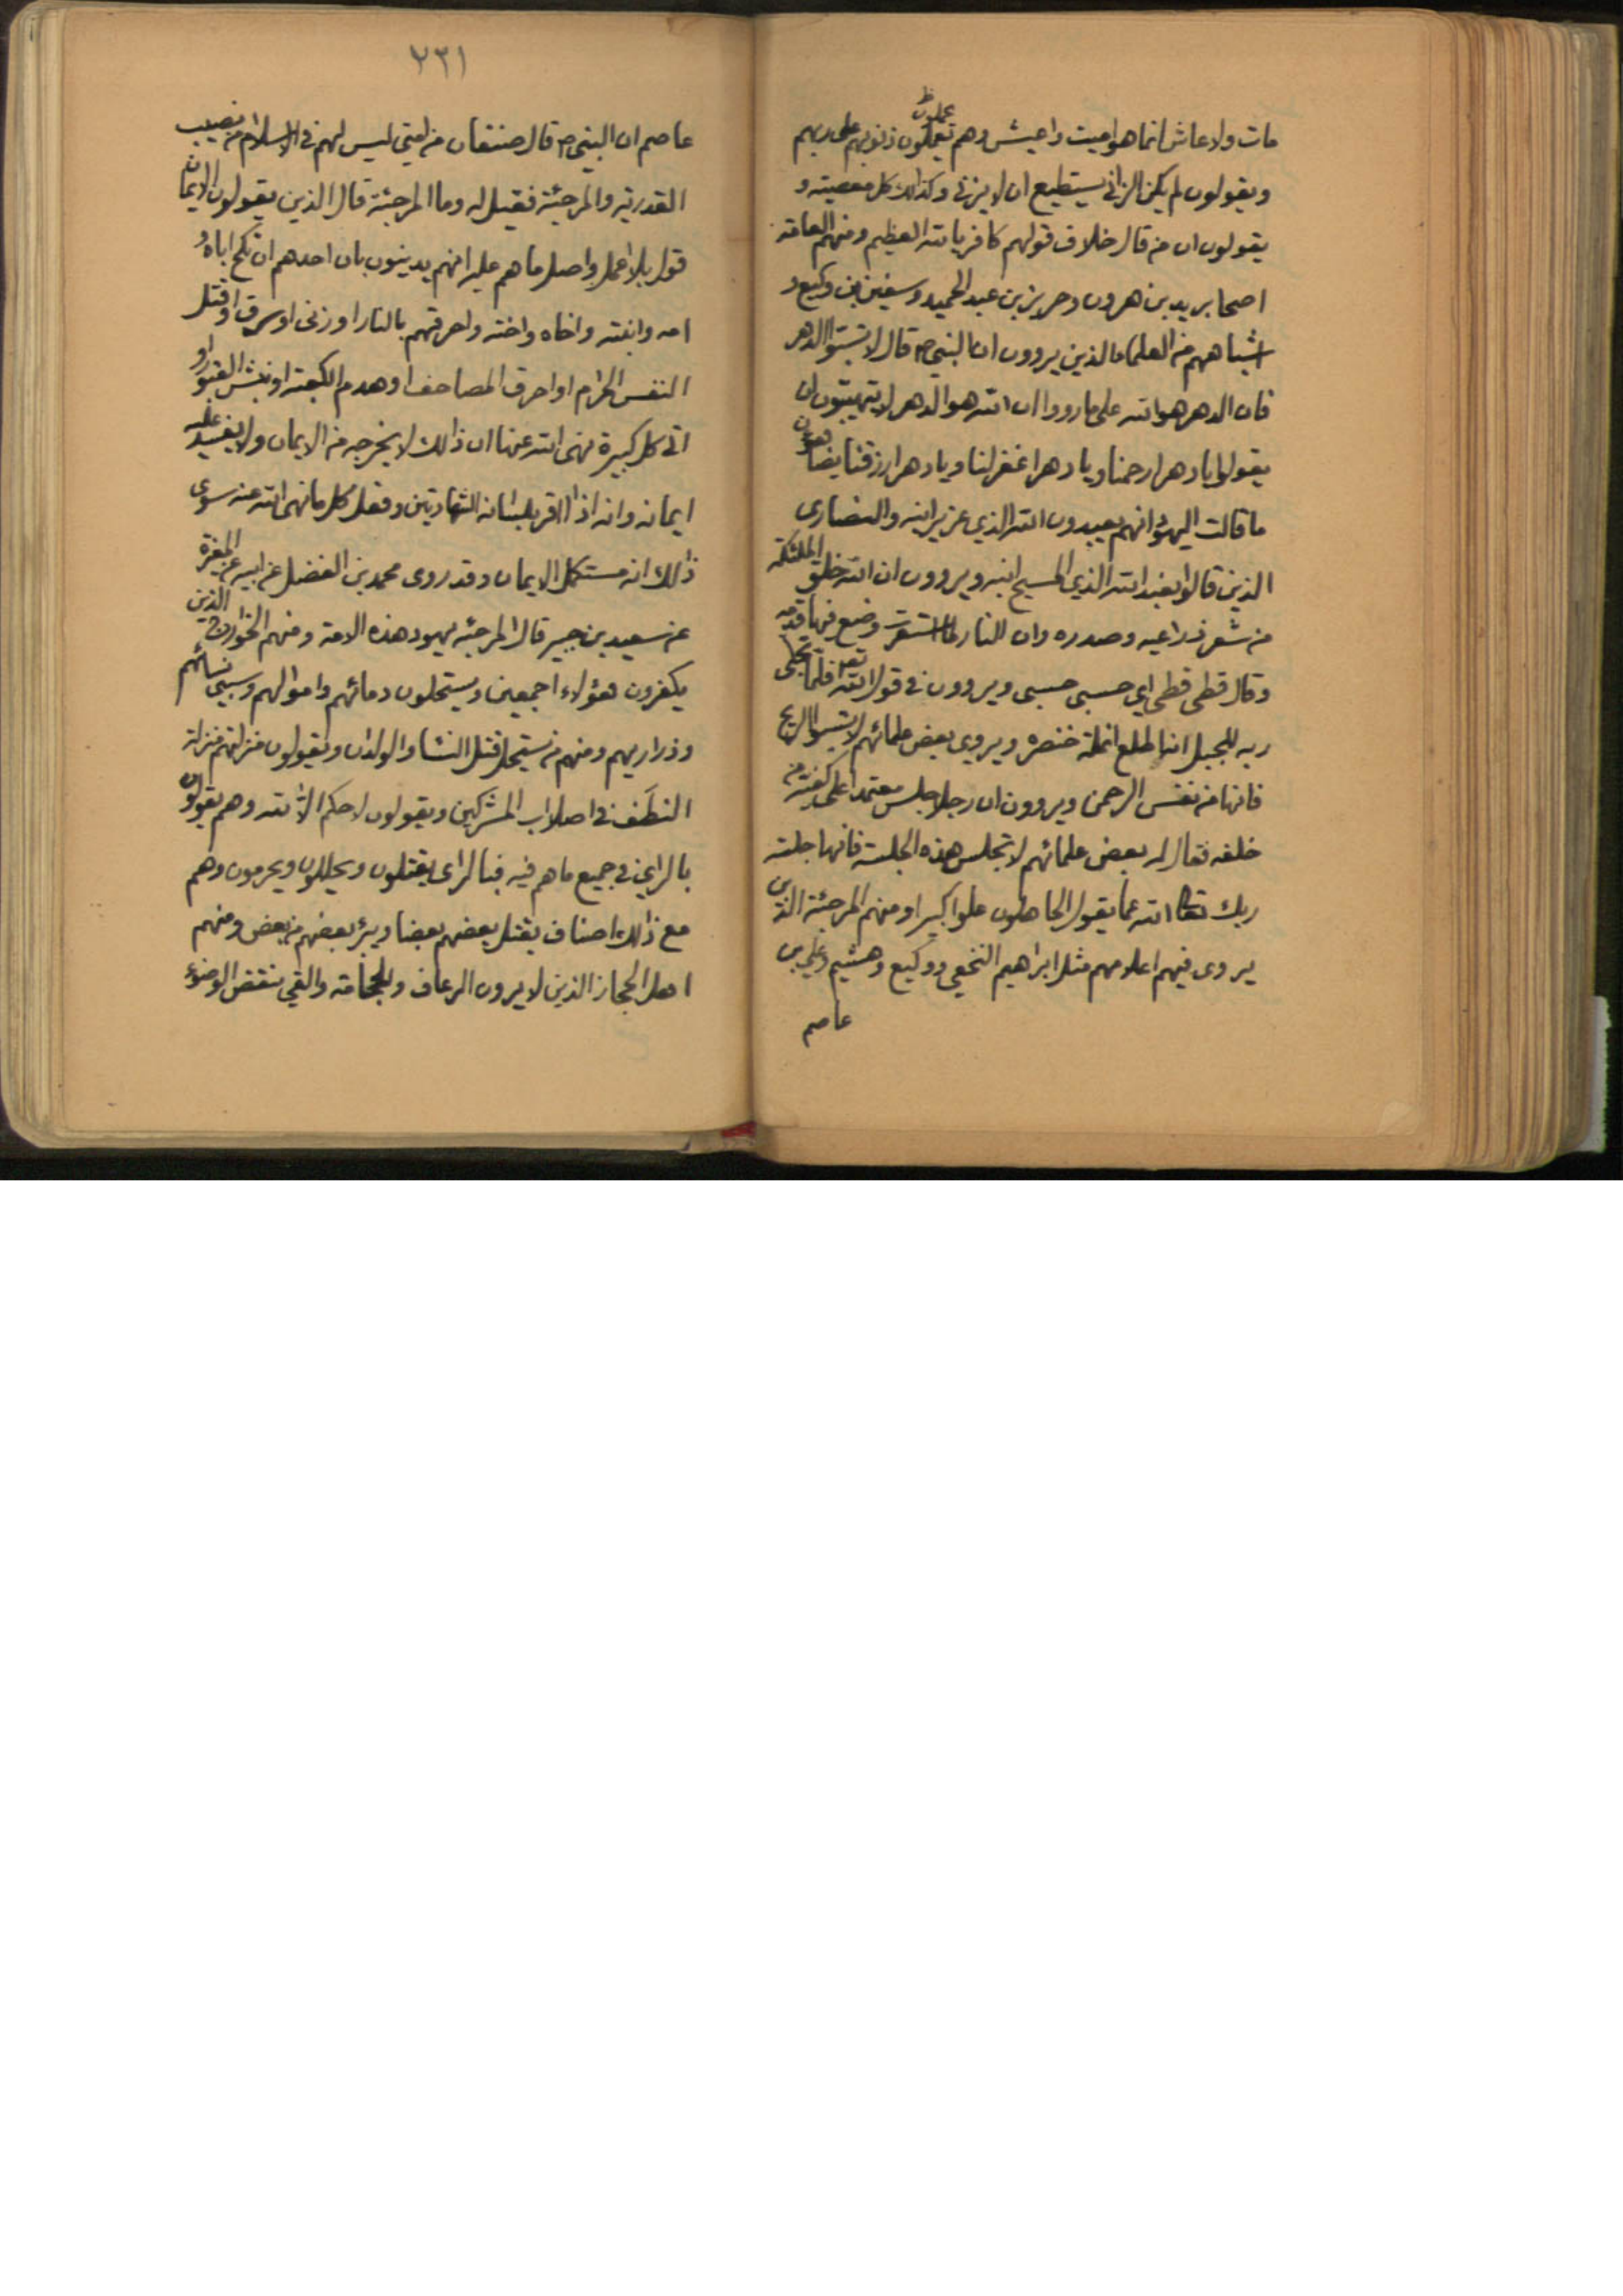 مات ولا عاش انما هو اميت واعيش وهم يحملون ذنوبهم على ربهم
ويقولون لم يكن الزاني يستطيع ان لا يزني وكذالك كل معصيته و
يقولون ان من قال خلاف قولهم كافر بالله العظيم ومنهم العامة
اصحاب يريد بن هرون وجريز بن عبد الحميد وسفين بن وكيع و
اشباههم من العلماء الذين يروون ان النبي ص قال لا تسبوا الدهر
فان الدهر هو الله على ما رووا ان الله هو الدهر لا يتهيبون ان
يقولوا يا دهر ارحمنا ويا دهر اغفر لنا ويا دهر ارزقنا يضاهؤن
ما قالت اليهود انهم يعبدون الله الذي عزير ابنه والنصارى
الذين قالوا نعبد الله الذي المسيح ابنه ويروون ان الله خلق الملئكة
من شعر ذراعيه وصدره وان النار لما استعرت وضع فيها قدمه
وقال قطى قطى اي حسبى حسبى ويروون في قول الله تع فلما تجلى
ربه للجبل انه اطلع انملة خنصره ويروى بعض علمائهم لا تسبوا الريح
فانها من نفس الرحمن ويروون ان رجلا جلس معتمدا على كفيه من
خلفه فقال له بعض علمائهم لا تجلس هذه الجلسة فانها جلسة
ربك تعالى الله عما يقول الجاهلون علوا كبيرا ومنهم المرجئة الذين
يروى فيهم اعلامهم مثل ابراهيم النخعي ووكيع وهشيم وعلي بن
عاصم
٢٣١
عاصم ان النبي ص قال صنفان من امتي ليس لهم في الاسلام نصيب
القدرية والمرجئة فقيل له وما المرجئة قال الذين يقولون الايمان
قول بلا عمل واصل ما هم عليه انهم يدينون بان احدهم ان نكح اباه و
امه وابنته واخاه واخته واحرقهم بالنار او زنى او سرق او قتل
النفس الحرام او احرق المصاحف او هدم الكعبة او نبش القبور او
اتى كل كبيرة نهى الله عنها ان ذالك لا يخرجه من الايمان ولا يفسد عليه
ايمانه وانه اذا اقر بلسانه الشهادتين وفعل كل ما نهى الله عنه سوى
ذالك انه مستكمل الايمان وقد روى محمد بن الفضل عن ابيه عن المغيرة
عن سعيد بن جبير قال المرجئه يهود هذه الامة ومنهم الخوارج الذين
يكفرون هؤلاء اجمعين ويستحلون دمائهم واموالهم وسبي نسائهم
وذراريهم ومنهم من يستحل قتل النساء والولدان ويقولون منزلتهم منزلة
النطف في اصلاب المشركين ويقولون لا حكم الا لله وهم يقولون
بالراي في جميع ما هم فيه فبالراى يقتلون ويحللون ويحرمون وهم
مع ذالك اصناف يقتل بعضهم بعضا ويبرئ بعضهم من بعض ومنهم
اهل الحجاز الذين لا يرون الرعاف والحجامة والقي ينقض الوضوء